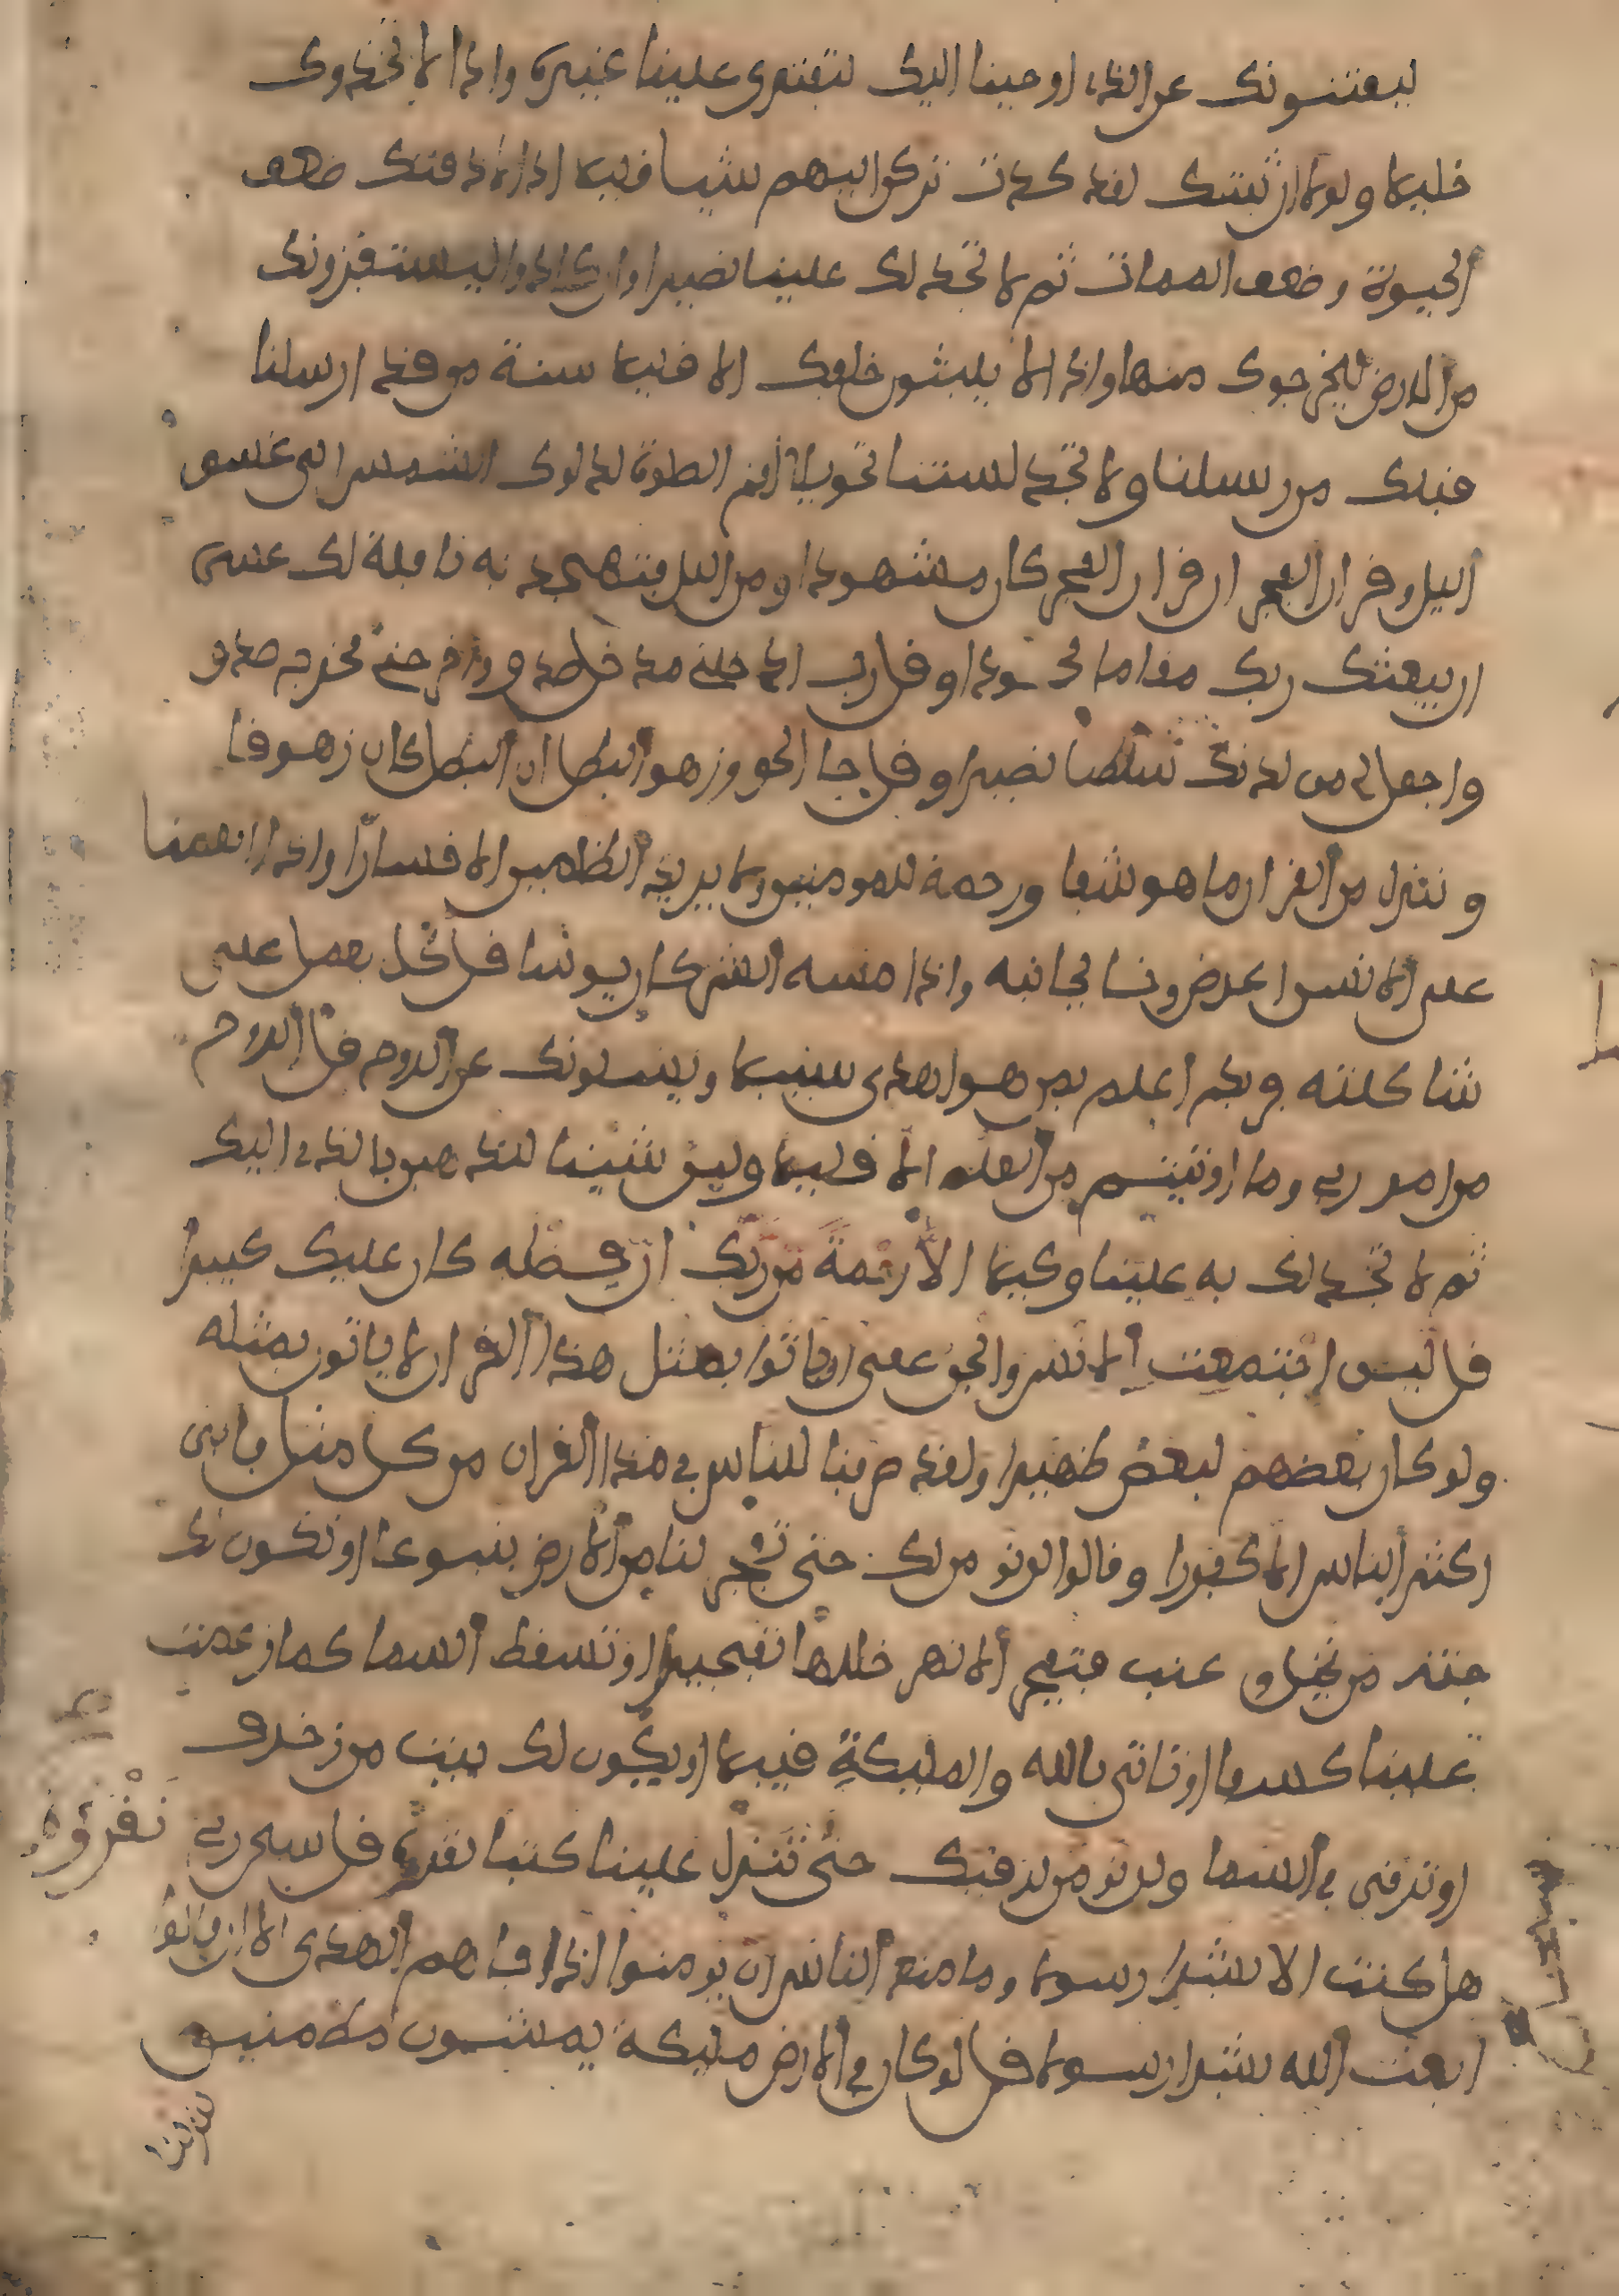 ليفتنونك عن الذى اوحينا اليك لتفترى علينا غيره واذا لاتخذوك
خليلا ولولا ان ثبتنك لقد كدت تركن اليهم شيا قليلا اذا لاذقنك ضعف
الحيوة وضعف الممات ثم لا تجد لك علينا نصيرا وان كادوا ليستفزونك
من الارض ليخرجوك منها واذا لا يلبثون خلفك الا قليلا سنة من قد ارسلنا
قبلك من رسلنا ولا تجد لسنتنا تحويلا اقم الصلوة لدلوك الشمس الى غسق
اليل وقران الفجر ان قران الفجر كان مشهودا ومن اليل فتهجد به نافلة لك عسى
ان يبعثك ربك مقاما محمودا وقل رب ادخلنى مدخل صدق واخرجنى مخرج صدق
واجعل لى من لدنك سلطنا نصيرا وقل جا الحق وزهق البطل ان البطل كان زهوقا
وننزل من القران ما هو شفا ورحمة للمومنين ولا يزيد الظلمين الا خسارا واذا انعمنا
على الانسن اعرض ونـا بجانبه واذا مسه الشر كان يوسا قل كل يعمل على
شاكلته فربكم اعلم بمن هو اهدى سبيلا ويسلونك عن الروح قل الروح
من امر ربى وما اوتيتم من العلم الا قليلا ولين شينا لنذهبن بالذى اوحينا اليك
ثم لا تجد لك به علينا وكيلا الا رحمة من ربك ان فضله كان عليك كبيرا
قل لين اجتمعت الانس والجن على ان ياتوا بمثل هذا القران لا ياتون بمثله
ولو كان بعضهم لبعض ظهيرا ولقد صرفنا للناس فى هذا القران من كل مثل فابى
اكثر الناس الا كفورا وقالوا لن نومن لك حتى تفجر لنا من الارض ينبوعا او تكون لك
جنة من نخيل وعنب فتفجر الانهر خللها تفجيرا او تسقط السما كما زعمت
علينا كسفا او تاتى بالله والمليكة قبيلا او يكون لك بيت من زخرف
او ترقى فى السما ولن نومن لرقيك حتى تنزل علينا كتبا نقرؤه قل سبحن ربى
نقرؤه
هل كنت الا بشرا رسولا وما منع الناس ان يومنوا اذ جاهم الهدى الا ان قالوا
ابعث الله بشرا رسولا قل لو كان فى الارض مليكة يمشون مطمنين
لنزلنا